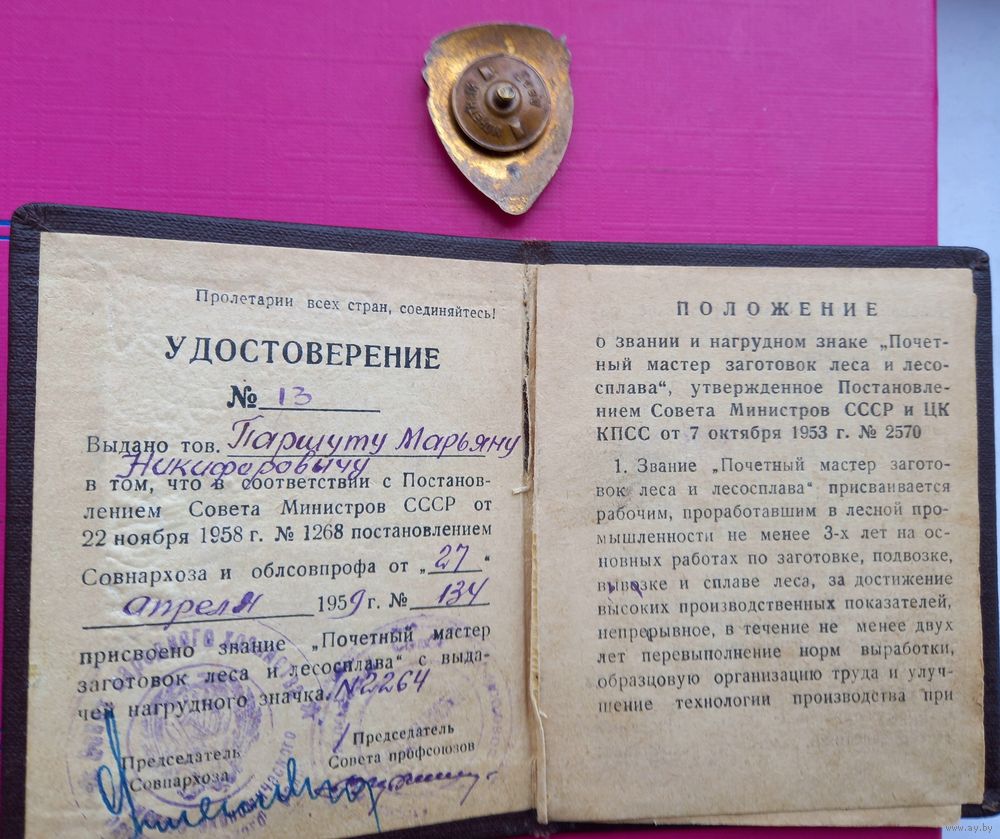 Пролетарии всех стран, соединяйтесь!
УДОСТОВЕРЕНИЕ
№ 13
Выдано тов. Паршуту Марьяну
Никифоровичу
в том, что в соответствии с Постанов-
лением Совета Министров СССР от
22 ноября 1958 г. № 1268 постановлением
Совнархоза и облсовпрофа от „27“
апреля 1959 г. № 134
присвоено звание „Почетный мастер
заготовок леса и лесосплава“ с выда-
чей нагрудного значка. №2264
Председатель
Совнархоза
Председатель
Совета профсоюзов
ПОЛОЖЕНИЕ
о звании и нагрудном знаке „Почет-
ный мастер заготовок леса и лесо-
сплава“, утвержденное Постановле-
нием Совета Министров СССР и ЦК
КПСС от 7 октября 1953 г. № 2570
1. Звание „Почетный мастер загото-
вок леса и лесосплава“ присваивается
рабочим, проработавшим в лесной про-
мышленности не менее 3-х лет на ос-
новных работах по заготовке, подвозке,
вывозке и сплаве леса, за достижение
высоких производственных показателей,
непрерывное, в течение не менее двух
лет перевыполнение норм выработки,
образцовую организацию труда и улуч-
шение технологии производства при
www.ay.by